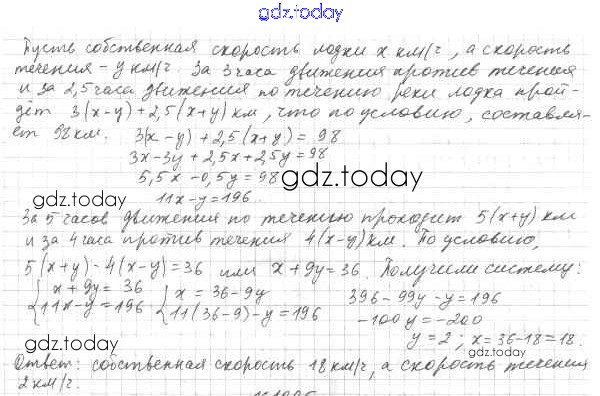 gdz.today
Пусть собственная скорость лодки x км/ч, а скорость
течения – y км/ч. За 3 часа движения против течения
и за 2,5 часа движения по течению реки лодка прой-
дёт 3(x-y)+2,5(x+y) км, что по условию, составля-
ет 98 км. 3(x-y)+2,5(x+y)=98
3x-3y+2,5x+2,5y=98
5,5x-0,5y=98
gdz.today
11x-y=196.
gdz.today
За 5 часов движения по течению проходит 5(x+y) км
и за 4 часа против течения 4(x-y) км. По условию,
5(x+y)-4(x-y)=36 или x+9y=36. Получим систему:
{x+9y=36 {x=36-9y 396-99y-y=196
{11x-y=196 {11(36-9)-y=196 -100y=-200
y=2, x=36-18=18.
gdz.today
gdz.today
Ответ: собственная скорость 18 км/ч, а скорость течения
2 км/ч.